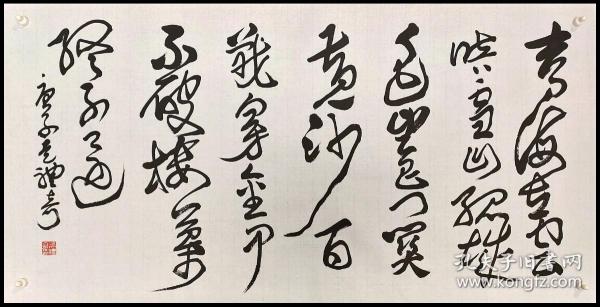 青海长云
暗雪山孤城
遥望玉门关
黄沙百
战穿金甲
不破楼兰
终不还
庚子
孔夫子旧书网
www.kongfz.com